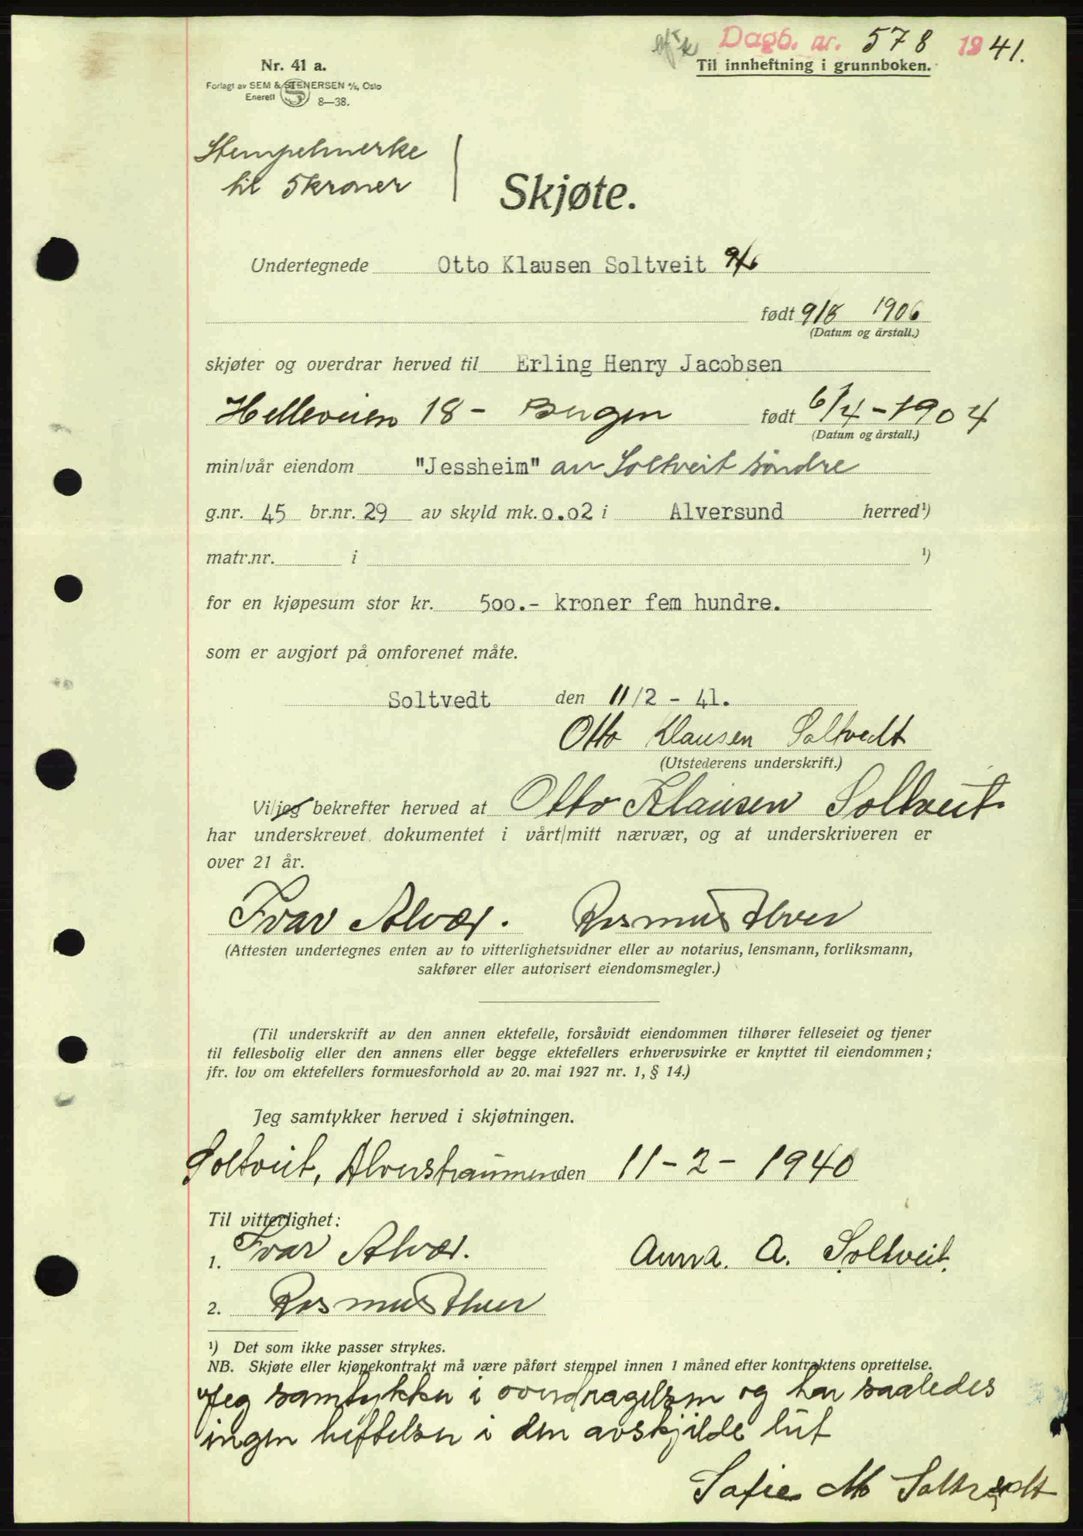 Dagb. nr. 578 1941.
Til innheftning i grunnboken.
Nr. 41 a.
Forlagt av SEM & STENERSEN A/S, Oslo
Enerett S 8—38.
Stempelmerke
til 5 kroner
Skjøte.
Undertegnede Otto Klausen Soltveit
født 9/8 1906
(Datum og årstall.)
skjøter og overdrar herved til Erling Henry Jacobsen
Helleveien 18 - Bergen født 6/4 - 1904
(Datum og årstall.)
min/vår eiendom "Jessheim" av Soltveit søndre
g.nr. 45 br.nr. 29 av skyld mk. 0.02 i Alversund herred¹)
matr.nr. i ¹)
for en kjøpesum stor kr. 500.- kroner fem hundre.
som er avgjort på omforenet måte.
Soltvedt den 11/2 - 41.
Otto Klausen Soltvedt
(Utstederens underskrift.)
Vi/jeg bekrefter herved at Otto Klausen Soltveit
har underskrevet dokumentet i vårt/mitt nærvær, og at underskriveren er
over 21 år.
Ivar Alvær. Rasmus Alver
(Attesten undertegnes enten av to vitterlighetsvidner eller av notarius, lensmann, forliksmann,
sakfører eller autorisert eiendomsmegler.)
(Til underskrift av den annen ektefelle, forsåvidt eiendommen tilhører felleseiet og tjener
til fellesbolig eller den annens eller begge ektefellers erhvervsvirke er knyttet til eiendommen;
jfr. lov om ektefellers formuesforhold av 20. mai 1927 nr. 1, § 14.)
Jeg samtykker herved i skjøtningen.
Soltveit, Alverstraumen den 11-2-1940
Til vitterlighet:
1. Ivar Alvær. Anna. A. Soltveit.
2. Rasmus Alver
¹) Det som ikke passer strykes.
NB. Skjøte eller kjøpekontrakt må være påført stempel innen 1 måned efter kontraktens oprettelse.
Jeg samtykker i overdragelsen og har saaledes
ingen heftelser i den avskjilde lut
Sofie M Soltvedt